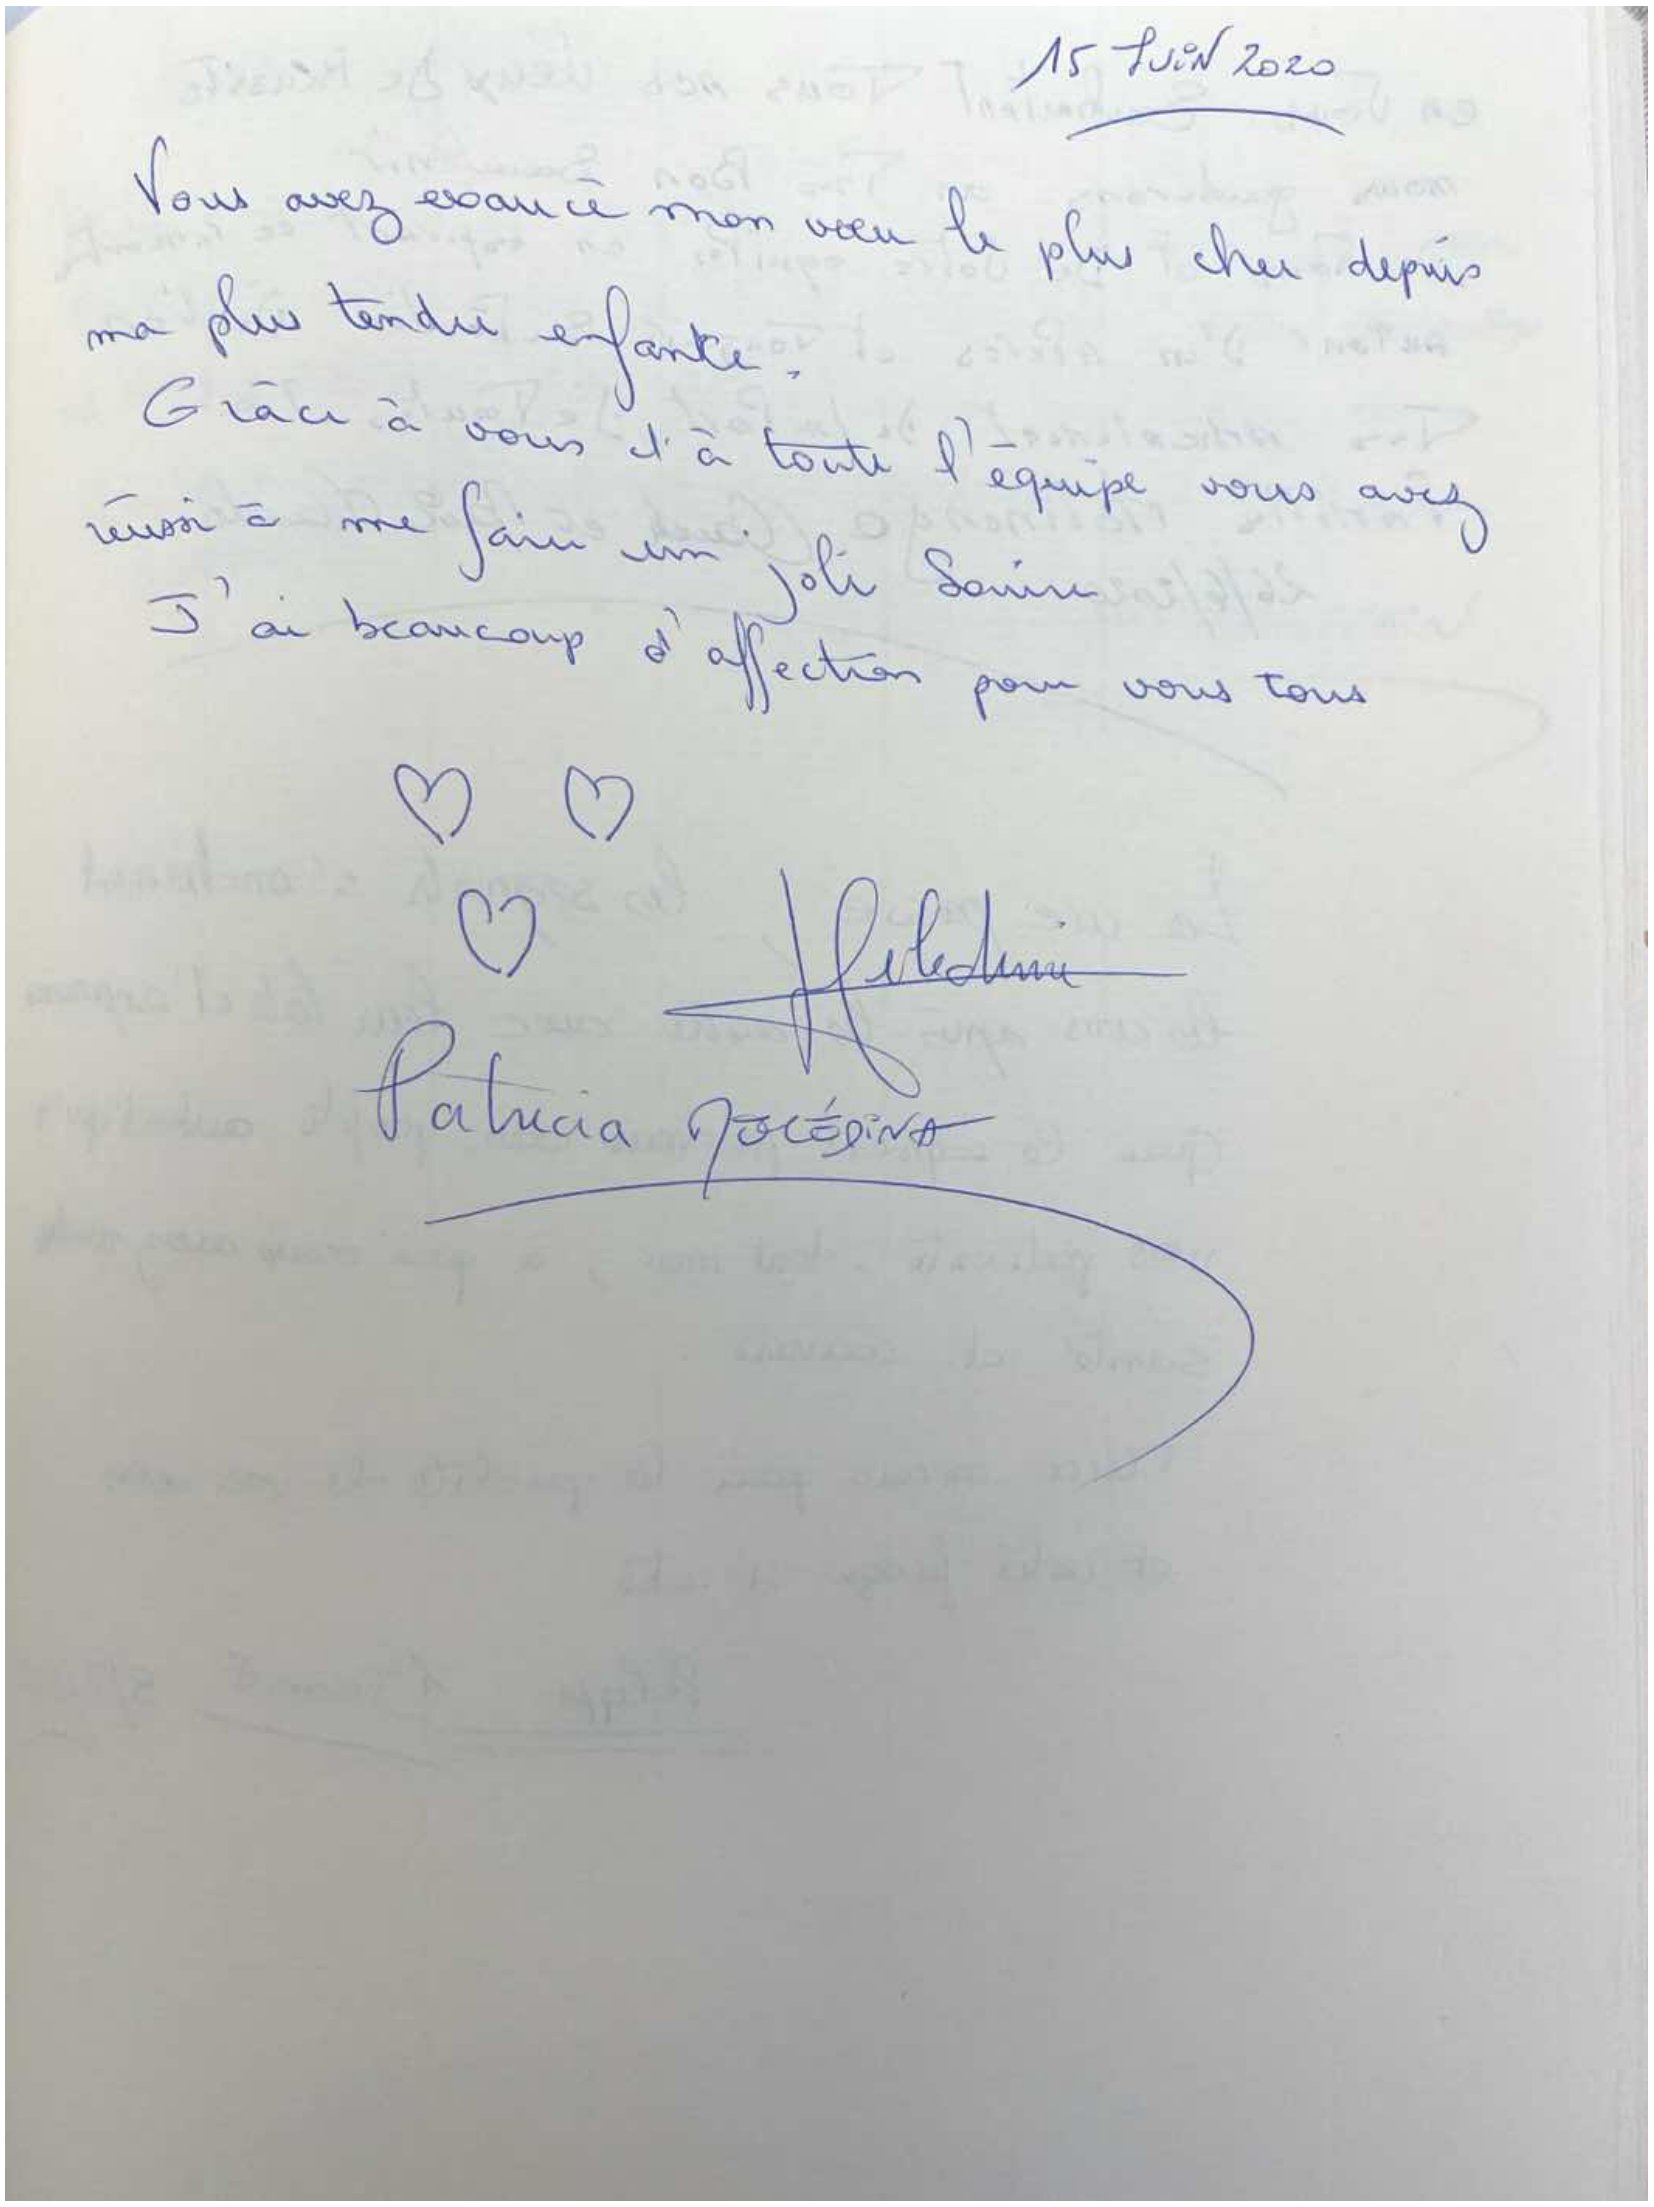 15 Juin 2020
Vous avez exaucé mon vœu le plus cher depuis
ma plus tendre enfance.
Grâce à vous et à toute l'équipe vous avez
réussi à me faire un joli Sourire
J'ai beaucoup d'affection pour vous tous
Patricia